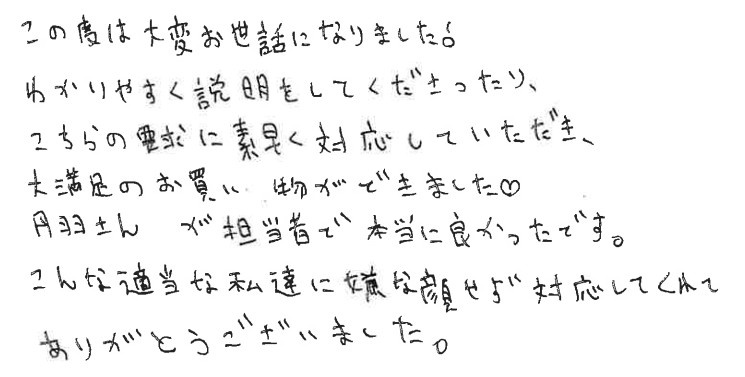 この度は大変お世話になりました!
わかりやすく説明をしてくださったり、
こちらの要求に素早く対応していただき、
大満足のお買い物ができました♡
丹羽さん が担当者で本当に良かったです。
こんな適当な私達に嫌な顔せず対応してくれて
ありがとうございました。